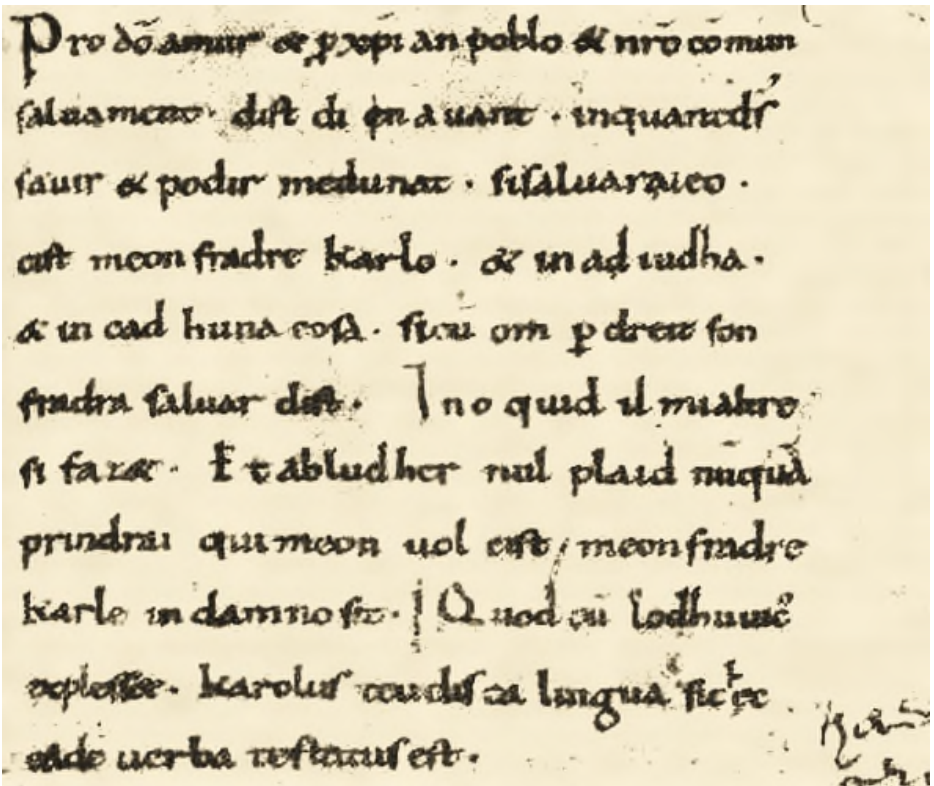 Pro dō amur & p xp̄ian poblo & nr̄o cōmun
saluament. dist di en auant. inquantd̄s
sauir & podir medunat. sisaluaraieo.
cist meon fradre karlo. & in ad iudha.
& in cad huna cosa. sicū om p dreit son
fradra saluar dist. Ino quid il mialtre
si fazet. Et abludher nul plaid nūquā
prindrai qui meon uol cist, meonfradre
karle in damno sit. Quod cū lodhuuic
explesset. karolus teudisca lingua sic ec
eadē uerba testatus est.